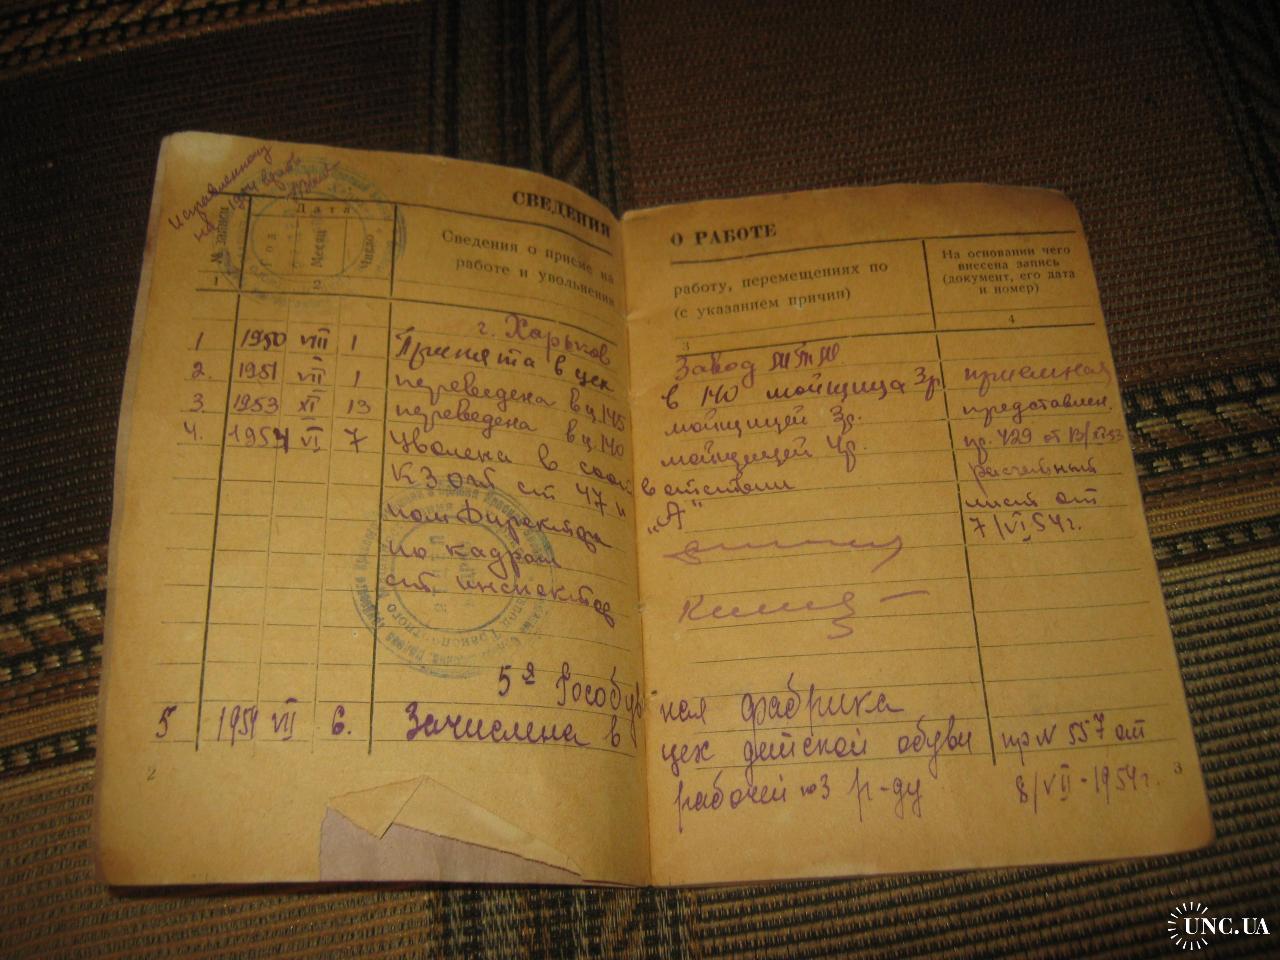 Исправленному
на 1954 верить
СВЕДЕНИЯ О РАБОТЕ
№ записи
Дата
Год
Месяц
Число
Сведения о приеме на работу, перемещениях по
работе и увольнении (с указанием причин)
На основании чего
внесена запись
(документ, его дата
и номер)
1 2 3 4
г. Харьков Завод
1 1950 VIII 1 Принята в цех в 140 мойщица 3р. приемная
2. 1951 VII 1 переведена в ц. 145 мойщицей 3р. представлен.
3 1953 XI 13 переведена в ц. 140 мойщицей 4р. пр. 429 от 13/XI 53
4. 1954 VI 7 Уволена в соот ветствии расчетный
КЗОТ ст 47 п „А“ лист от
пом директора 7/VI 54г.
по кадрам
ст. инспектор
5я Гособув ная фабрика
5 1954 VII 6. Зачислена в цех детской обуви пр N 557 от
рабочей по 3 р-ду 8/VII-1954г.
2 3
UNC.UA